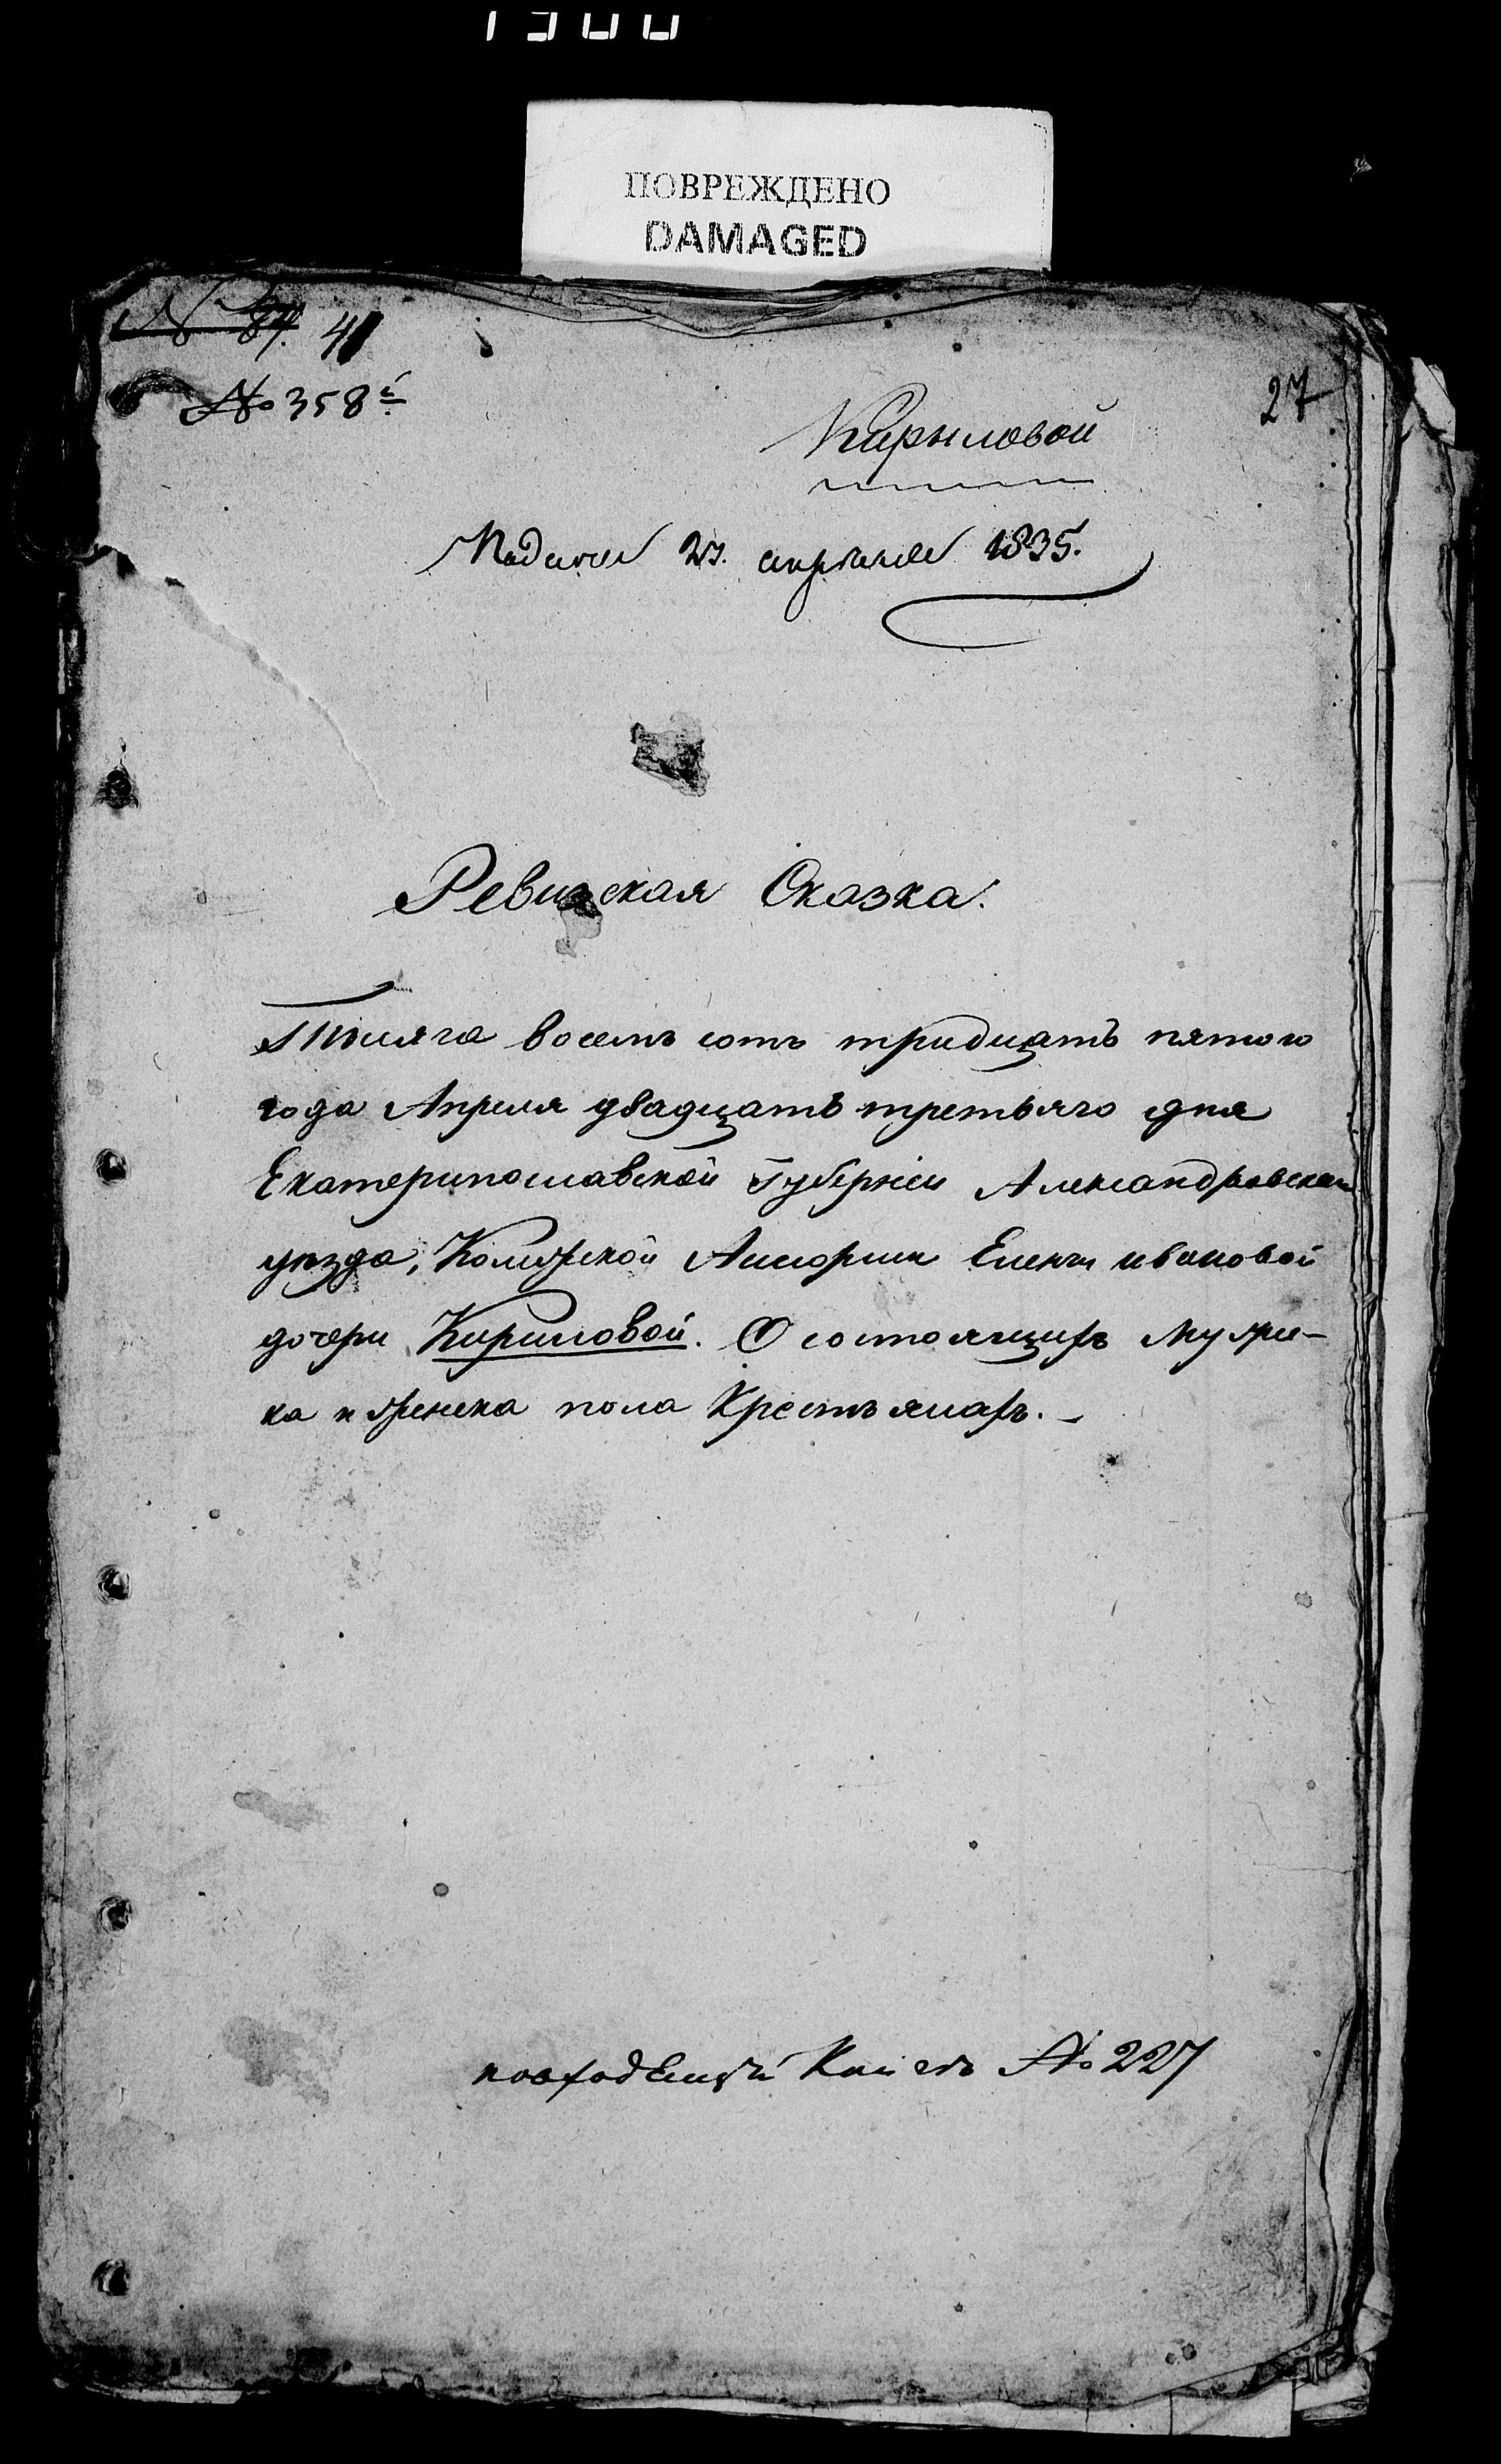 ПОВРЕЖДЕНО
DAMAGED
41
№ 358й
27
Кирыловой
Подана 23. апреля 1835.
Ревизская Сказка.
Тысяча восемь сотъ тридцать пятого
года Апреля двадцать третьяго дня
Екатеринославской Губерніи Александровскаго
уезда, Колижской Ассорши Елены ивановой
дочери Кириловой. О состоящихъ мужес-
ка и женска пола Крестьянахъ.
повходящей Книге № 227